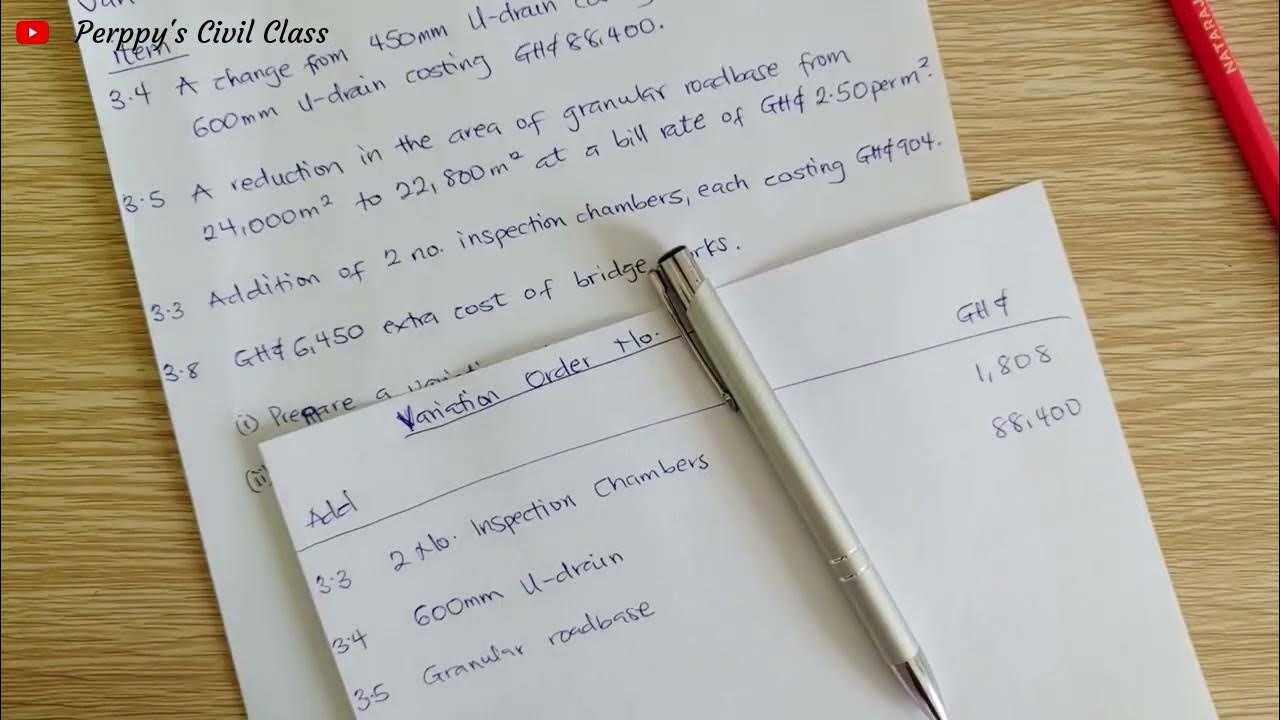 Perppy's Civil Class
Item
3.4 A change from 450mm U-drain
600mm U-drain costing GH¢88,400.
3.5 A reduction in the area of granular roadbase from
24,000m² to 22,800m² at a bill rate of GH¢2.50 per m².
3.3 Addition of 2 no. inspection chambers, each costing GH¢904.
3.8 GH¢6,450 extra cost of bridge rks.
(i) Prepare a
(ii)
Variation Order No.
GH¢
Add
3.3 2 No. Inspection Chambers 1,808
3.4 600mm U-drain 88,400
3.5 Granular roadbase
NATARAJ